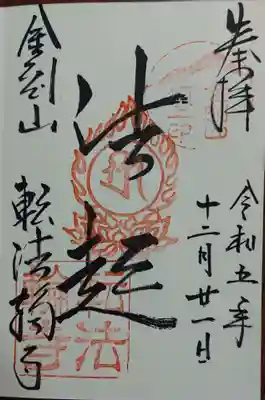 奉拝
令和五年
十二月廿一日
法起
金剛山
転法輪寺
転法輪寺